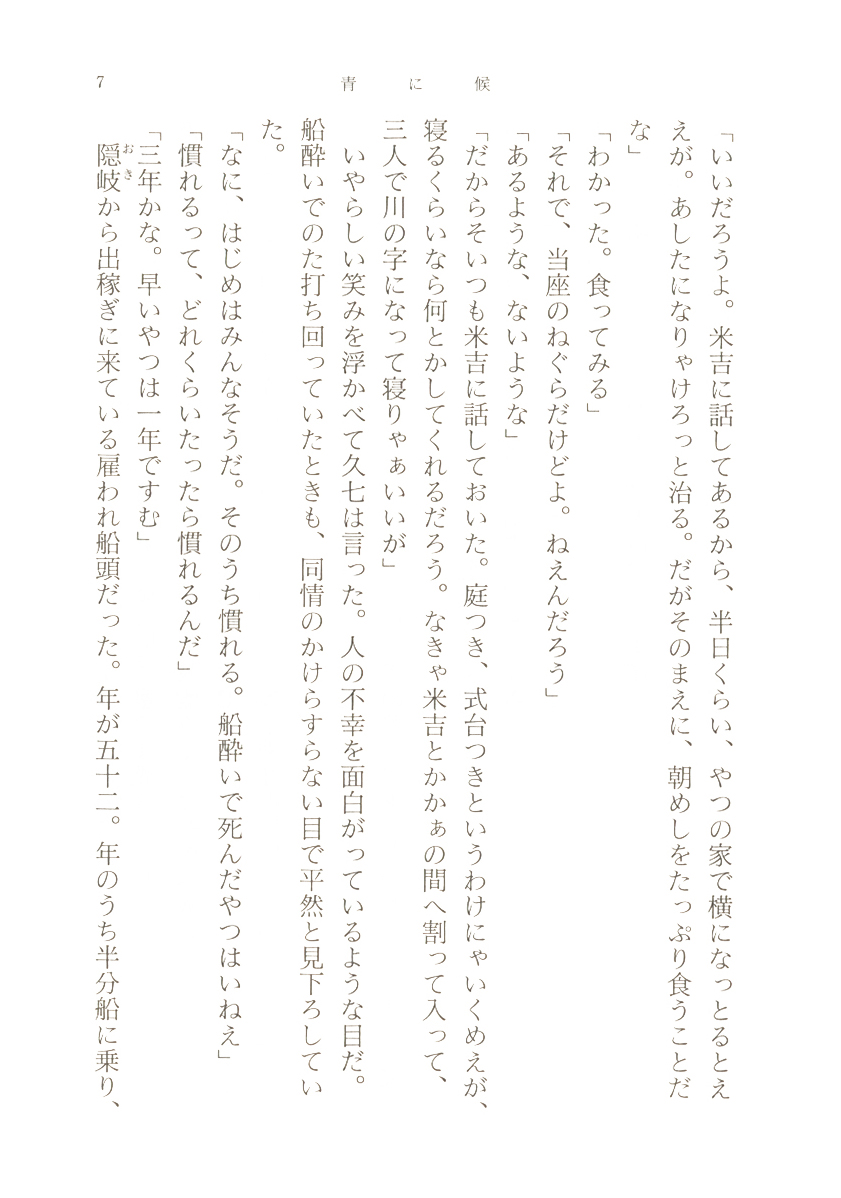 7
青に候
「いいだろうよ。米吉に話してあるから、半日くらい、やつの家で横になっとるとえ
えが。あしたになりゃけろっと治る。だがそのまえに、朝めしをたっぷり食うことだ
な」
「わかった。食ってみる」
「それで、当座のねぐらだけどよ。ねえんだろう」
「あるような、ないような」
「だからそいつも米吉に話しておいた。庭つき、式台つきというわけにゃいくめえが、
寝るくらいなら何とかしてくれるだろう。なきゃ米吉とかかぁの間へ割って入って、
三人で川の字になって寝りゃぁいいが」
いやらしい笑みを浮かべて久七は言った。人の不幸を面白がっているような目だ。
船酔いでのた打ち回っていたときも、同情のかけらすらない目で平然と見下ろしてい
た。
「なに、はじめはみんなそうだ。そのうち慣れる。船酔いで死んだやつはいねえ」
「慣れるって、どれくらいたったら慣れるんだ」
「三年かな。早いやつは一年ですむ」
隠岐から出稼ぎに来ている雇われ船頭だった。年が五十二。年のうち半分船に乗り、
おき